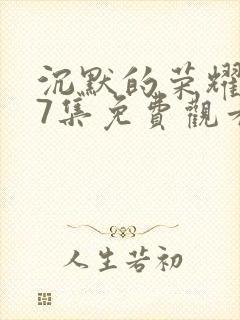 沉默的荣耀
7集免費觀
人生若初